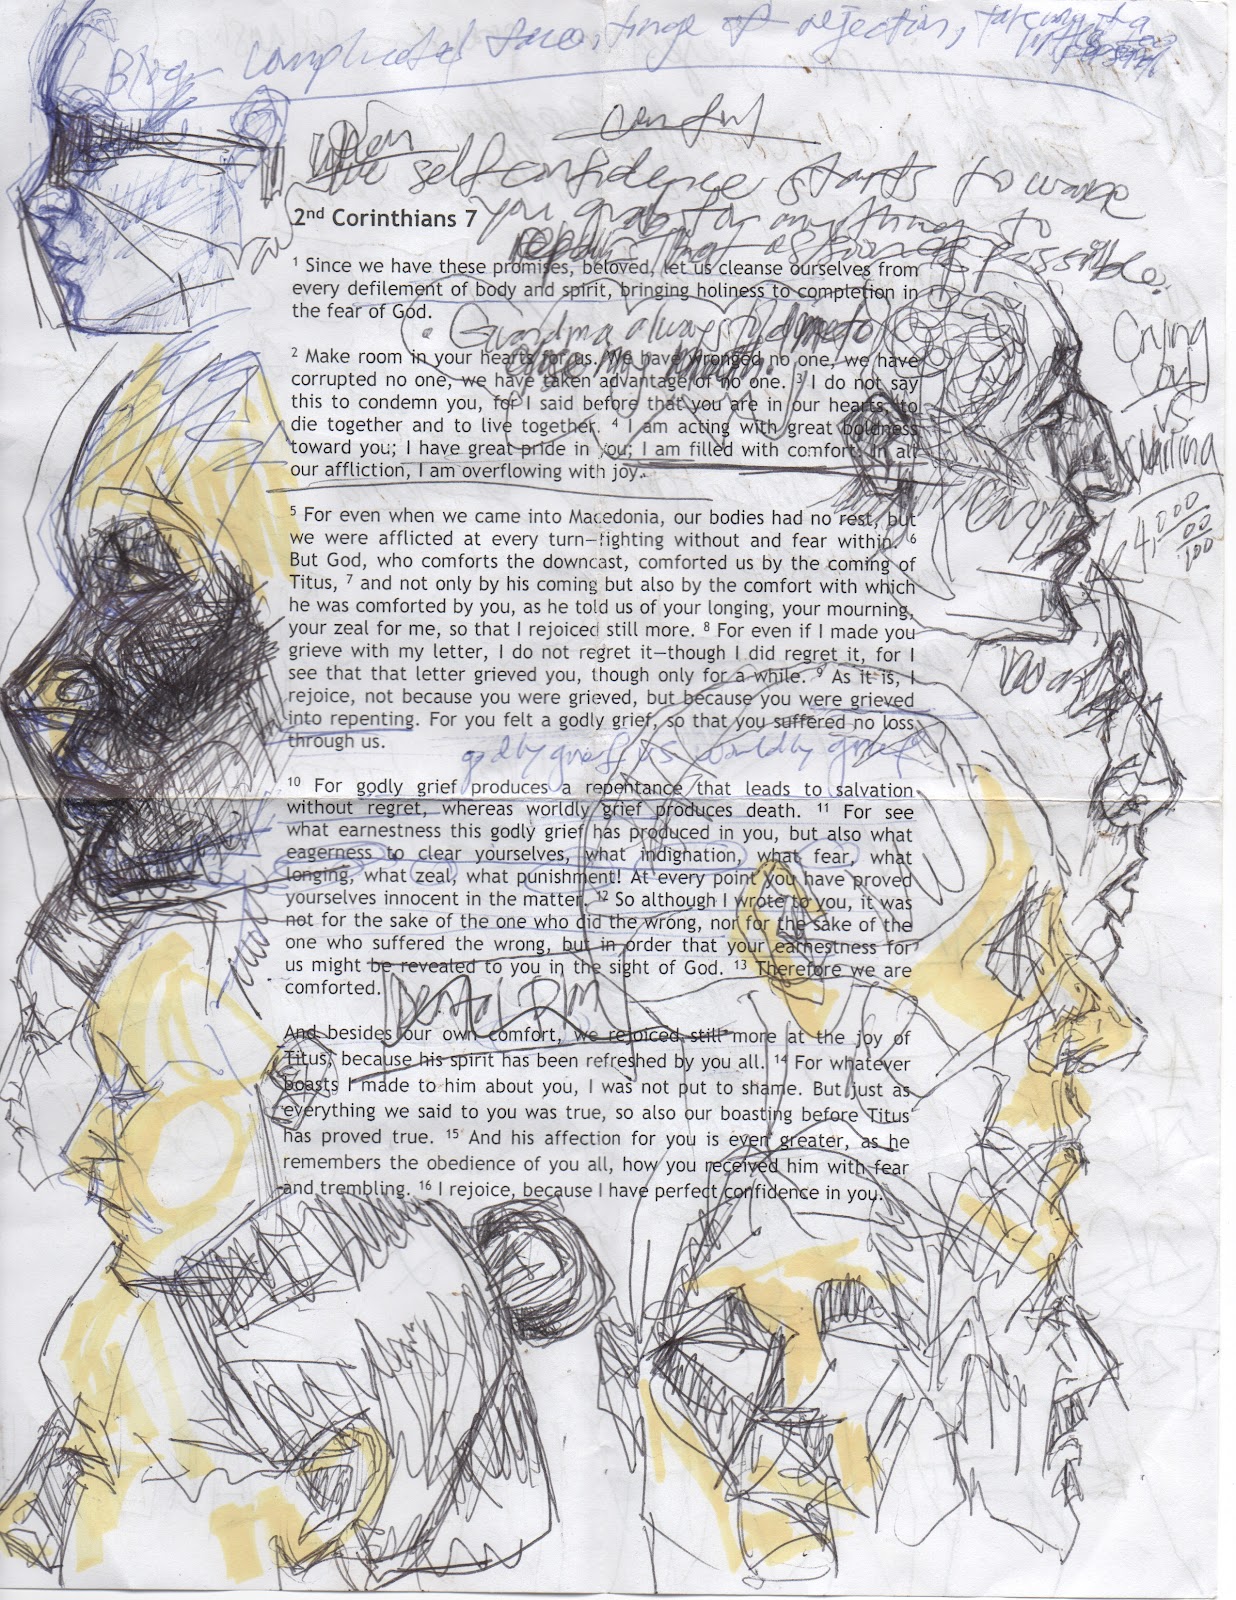 Blog complicated face, tinge of rejection, taking it a
careful
When
the self confidence starts to wane
you grab for anything to
repair that as soon as possible.
2nd Corinthians 7
1 Since we have these promises, beloved, let us cleanse ourselves from
every defilement of body and spirit, bringing holiness to completion in
the fear of God.
Grandma always told me to
2 Make room in your hearts for us. We have wronged no one, we have
corrupted no one, we have taken advantage of no one. 3 I do not say
this to condemn you, for I said before that you are in our hearts, to
die together and to live together. 4 I am acting with great boldness
toward you; I have great pride in you; I am filled with comfort. In all
our affliction, I am overflowing with joy.
Crying
Loud
VS
4,000
00
100
5 For even when we came into Macedonia, our bodies had no rest, but
we were afflicted at every turn—fighting without and fear within. 6
But God, who comforts the downcast, comforted us by the coming of
Titus, 7 and not only by his coming but also by the comfort with which
he was comforted by you, as he told us of your longing, your mourning,
your zeal for me, so that I rejoiced still more. 8 For even if I made you
grieve with my letter, I do not regret it—though I did regret it, for I
see that that letter grieved you, though only for a while. 9 As it is, I
rejoice, not because you were grieved, but because you were grieved
into repenting. For you felt a godly grief, so that you suffered no loss
through us.
godly grief vs worldly grief
10 For godly grief produces a repentance that leads to salvation
without regret, whereas worldly grief produces death. 11 For see
what earnestness this godly grief has produced in you, but also what
eagerness to clear yourselves, what indignation, what fear, what
longing, what zeal, what punishment! At every point you have proved
yourselves innocent in the matter. 12 So although I wrote to you, it was
not for the sake of the one who did the wrong, nor for the sake of the
one who suffered the wrong, but in order that your earnestness for
us might be revealed to you in the sight of God. 13 Therefore we are
comforted.
And besides our own comfort, we rejoiced still more at the joy of
Titus, because his spirit has been refreshed by you all. 14 For whatever
boasts I made to him about you, I was not put to shame. But just as
everything we said to you was true, so also our boasting before Titus
has proved true. 15 And his affection for you is even greater, as he
remembers the obedience of you all, how you received him with fear
and trembling. 16 I rejoice, because I have perfect confidence in you.